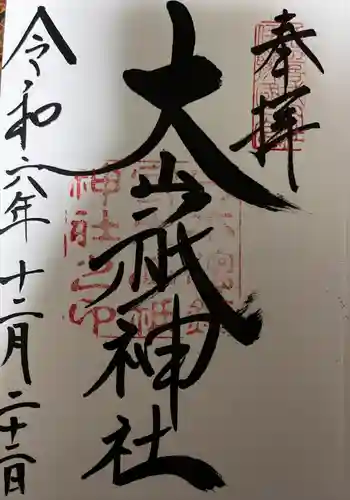 奉拝
大山祇神社
令和六年十二月二十二日